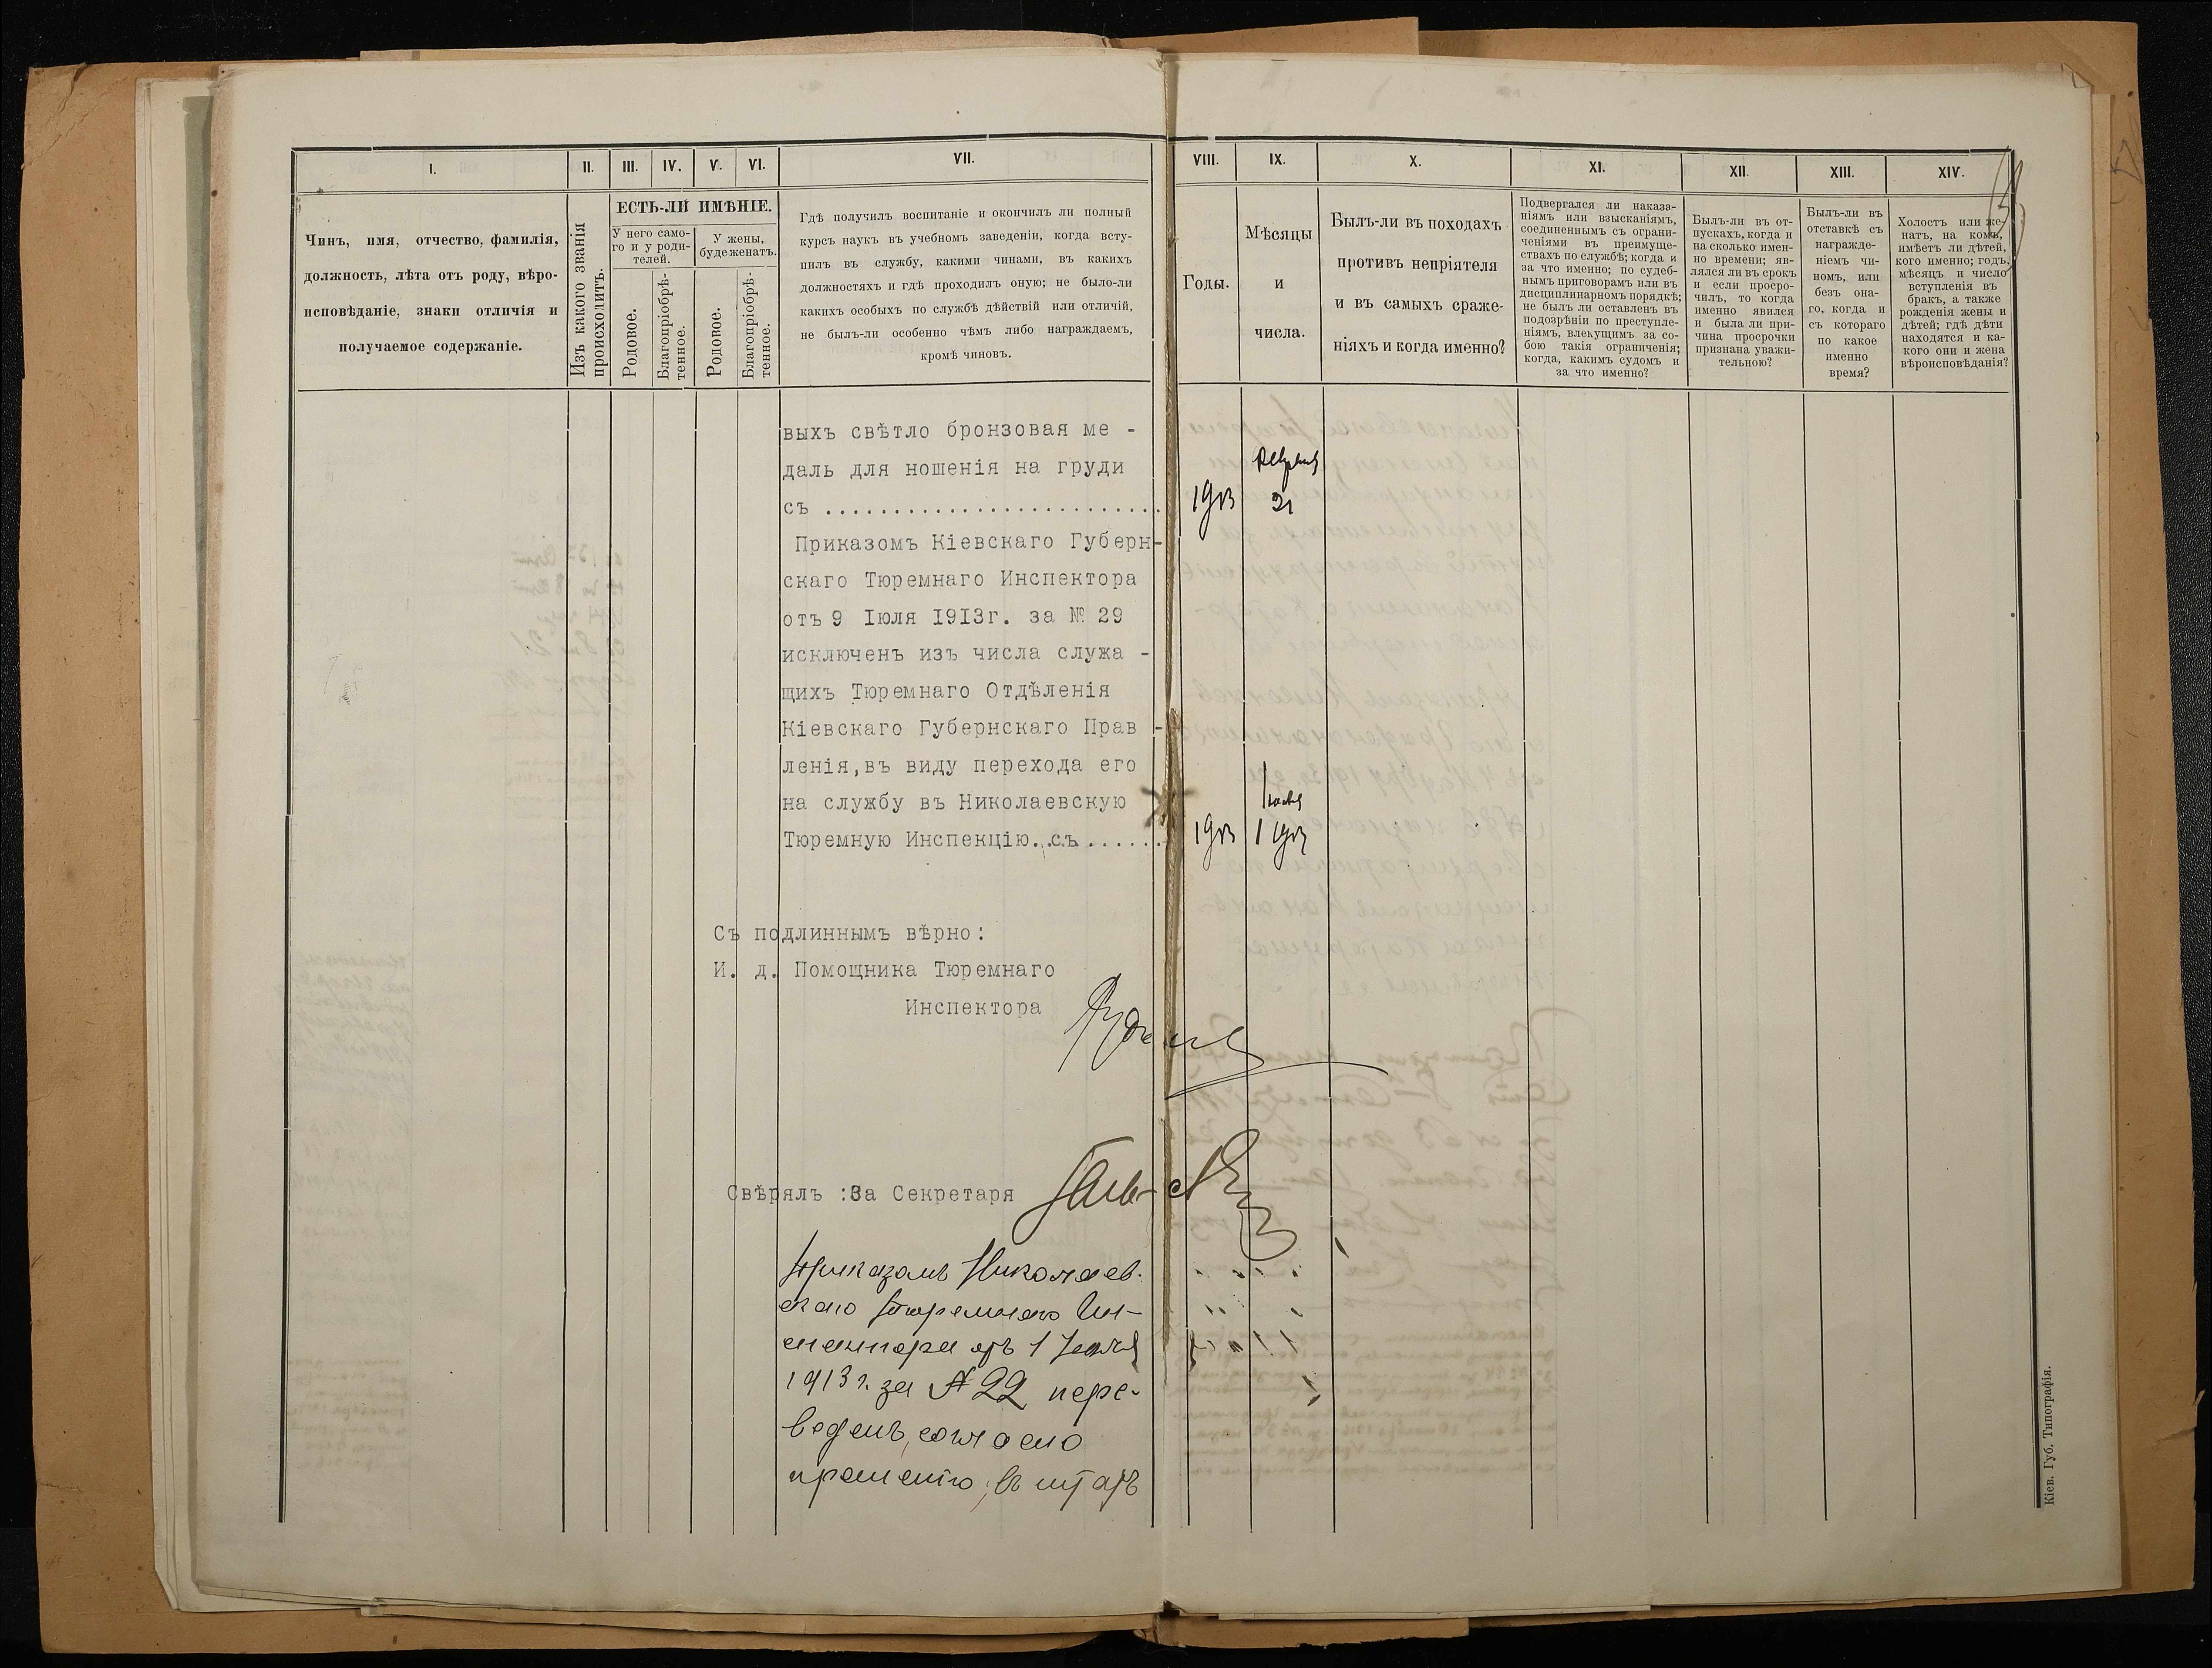 I.
II.
III.
IV.
V.
VI.
VII.
VIII.
IX.
X.
XI.
XII.
XIII.
XIV.
Чинъ, имя, отчество, фамилія,
должность, лѣта отъ роду, вѣро-
исповѣданіе, знаки отличія и
получаемое содержаніе.
Изъ какого званія
происходитъ.
ЕСТЬ-ЛИ ИМѢНІЕ.
У него само-
го и у роди-
телей.
У жены,
буде женатъ.
Родовое.
Благопріобрѣ-
тенное.
Родовое.
Благопріобрѣ-
тенное.
Гдѣ получилъ воспитаніе и окончилъ ли полный
курсъ наукъ въ учебномъ заведеніи, когда всту-
пилъ въ службу, какими чинами, въ какихъ
должностяхъ и гдѣ проходилъ оную; не было-ли
какихъ особыхъ по службѣ дѣйствій или отличій,
не былъ-ли особенно чѣмъ либо награждаемъ,
кромѣ чиновъ.
Годы.
Мѣсяцы
и
числа.
Былъ-ли въ походахъ
противъ непріятеля
и въ самыхъ сраже-
ніяхъ и когда именно?
Подвергался ли наказа-
ніямъ или взысканіямъ,
соединеннымъ съ ограни-
ченіями въ преимуще-
ствахъ по службѣ; когда и
за что именно; по судеб-
нымъ приговорамъ или въ
дисциплинарномъ порядкѣ;
не былъ ли оставленъ въ
подозрѣніи по преступле-
ніямъ, влекущимъ за со-
бою такія ограниченія;
когда, какимъ судомъ и
за что именно?
Былъ-ли въ от-
пускахъ, когда и
на сколько имен-
но времени; яв-
лялся ли въ срокъ
и если просро-
чилъ, то когда
именно явился
и была ли при-
чина просрочки
признана уважи-
тельною?
Былъ-ли въ
отставкѣ съ
награжде-
ніемъ чи-
номъ, или
безъ она-
го, когда и
съ котораго
по какое
именно
время?
Холостъ или же-
натъ, на комъ,
имѣетъ ли дѣтей,
кого именно; годъ,
мѣсяцъ и число
вступленія въ
бракъ, а также
рожденія жены и
дѣтей; гдѣ дѣти
находятся и ка-
кого они и жена
вѣроисповѣданія?
выхъ свѣтло бронзовая ме -
даль для ношенія на груди
съ .........................
1913 Февраля 21
Приказомъ Кіевскаго Губерн-
скаго Тюремнаго Инспектора
отъ 9 Іюля 1913г. за № 29
исключенъ изъ числа служа -
щихъ Тюремнаго Отдѣленія
Кіевскаго Губернскаго Прав -
ленія,въ виду перехода его
на службу въ Николаевскую
Тюремную Инспекцію..съ......
1913 Іюля 1 1913
Съ подлиннымъ вѣрно:
И. д. Помощника Тюремнаго
Инспектора
Свѣрялъ :За Секретаря
Приказомъ Николаев-
скаго Тюремнаго Ин-
спектора отъ 1 Іюля
1913 г. за № 22 пере-
веденъ, согласно
прошенію, въ штатъ
Кіев. Губ. Типографія.